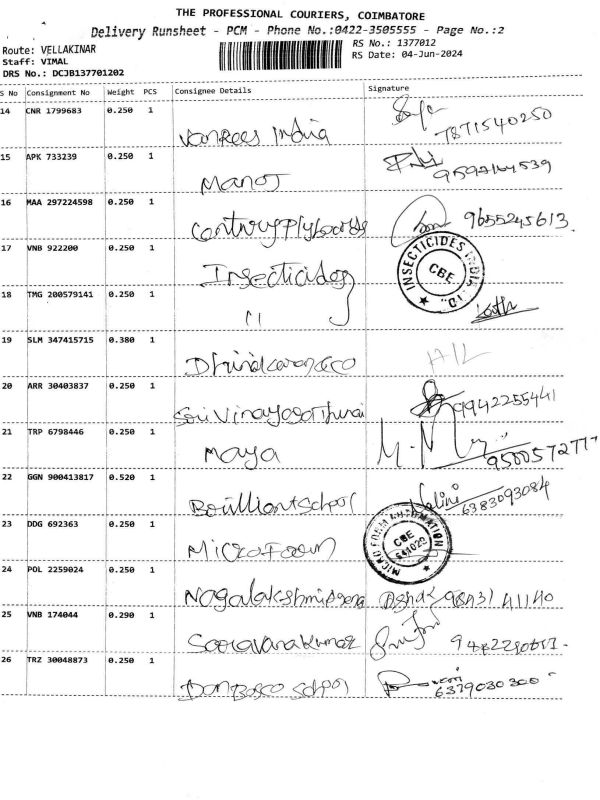 THE PROFESSIONAL COURIERS, COIMBATORE
Delivery Runsheet - PCM - Phone No.:0422-3505555 - Page No.:2
Route: VELLAKINAR
Staff: VIMAL
DRS No.: DCJB137701202
RS No.: 1377012
RS Date: 04-Jun-2024
S No Consignment No Weight PCS Consignee Details Signature
14 CNR 1799683 0.250 1 India
7871540250
15 APK 733239 0.250 1 Manoj
16 MAA 297224598 0.250 1 Century Plyboards 9655245613
17 VNB 922200 0.250 1 Insecticides
INSECTICIDES INDIA LTD. CBE
18 TMG 200579141 0.250 1 11
19 SLM 347415715 0.380 1
20 ARR 30403837 0.250 1 9942255441
21 TRP 6798446 0.250 1 Maya
22 GGN 900413817 0.520 1 Brilliant School Nalini
6383093084
23 DDG 692363 0.250 1 Microform
MICRO FORM AUTOMATION CBE
24 POL 2259024 0.250 1
25 VNB 174044 0.290 1 Saravanakumar
26 TRZ 30048873 0.250 1 Don Bosco School
6379030300